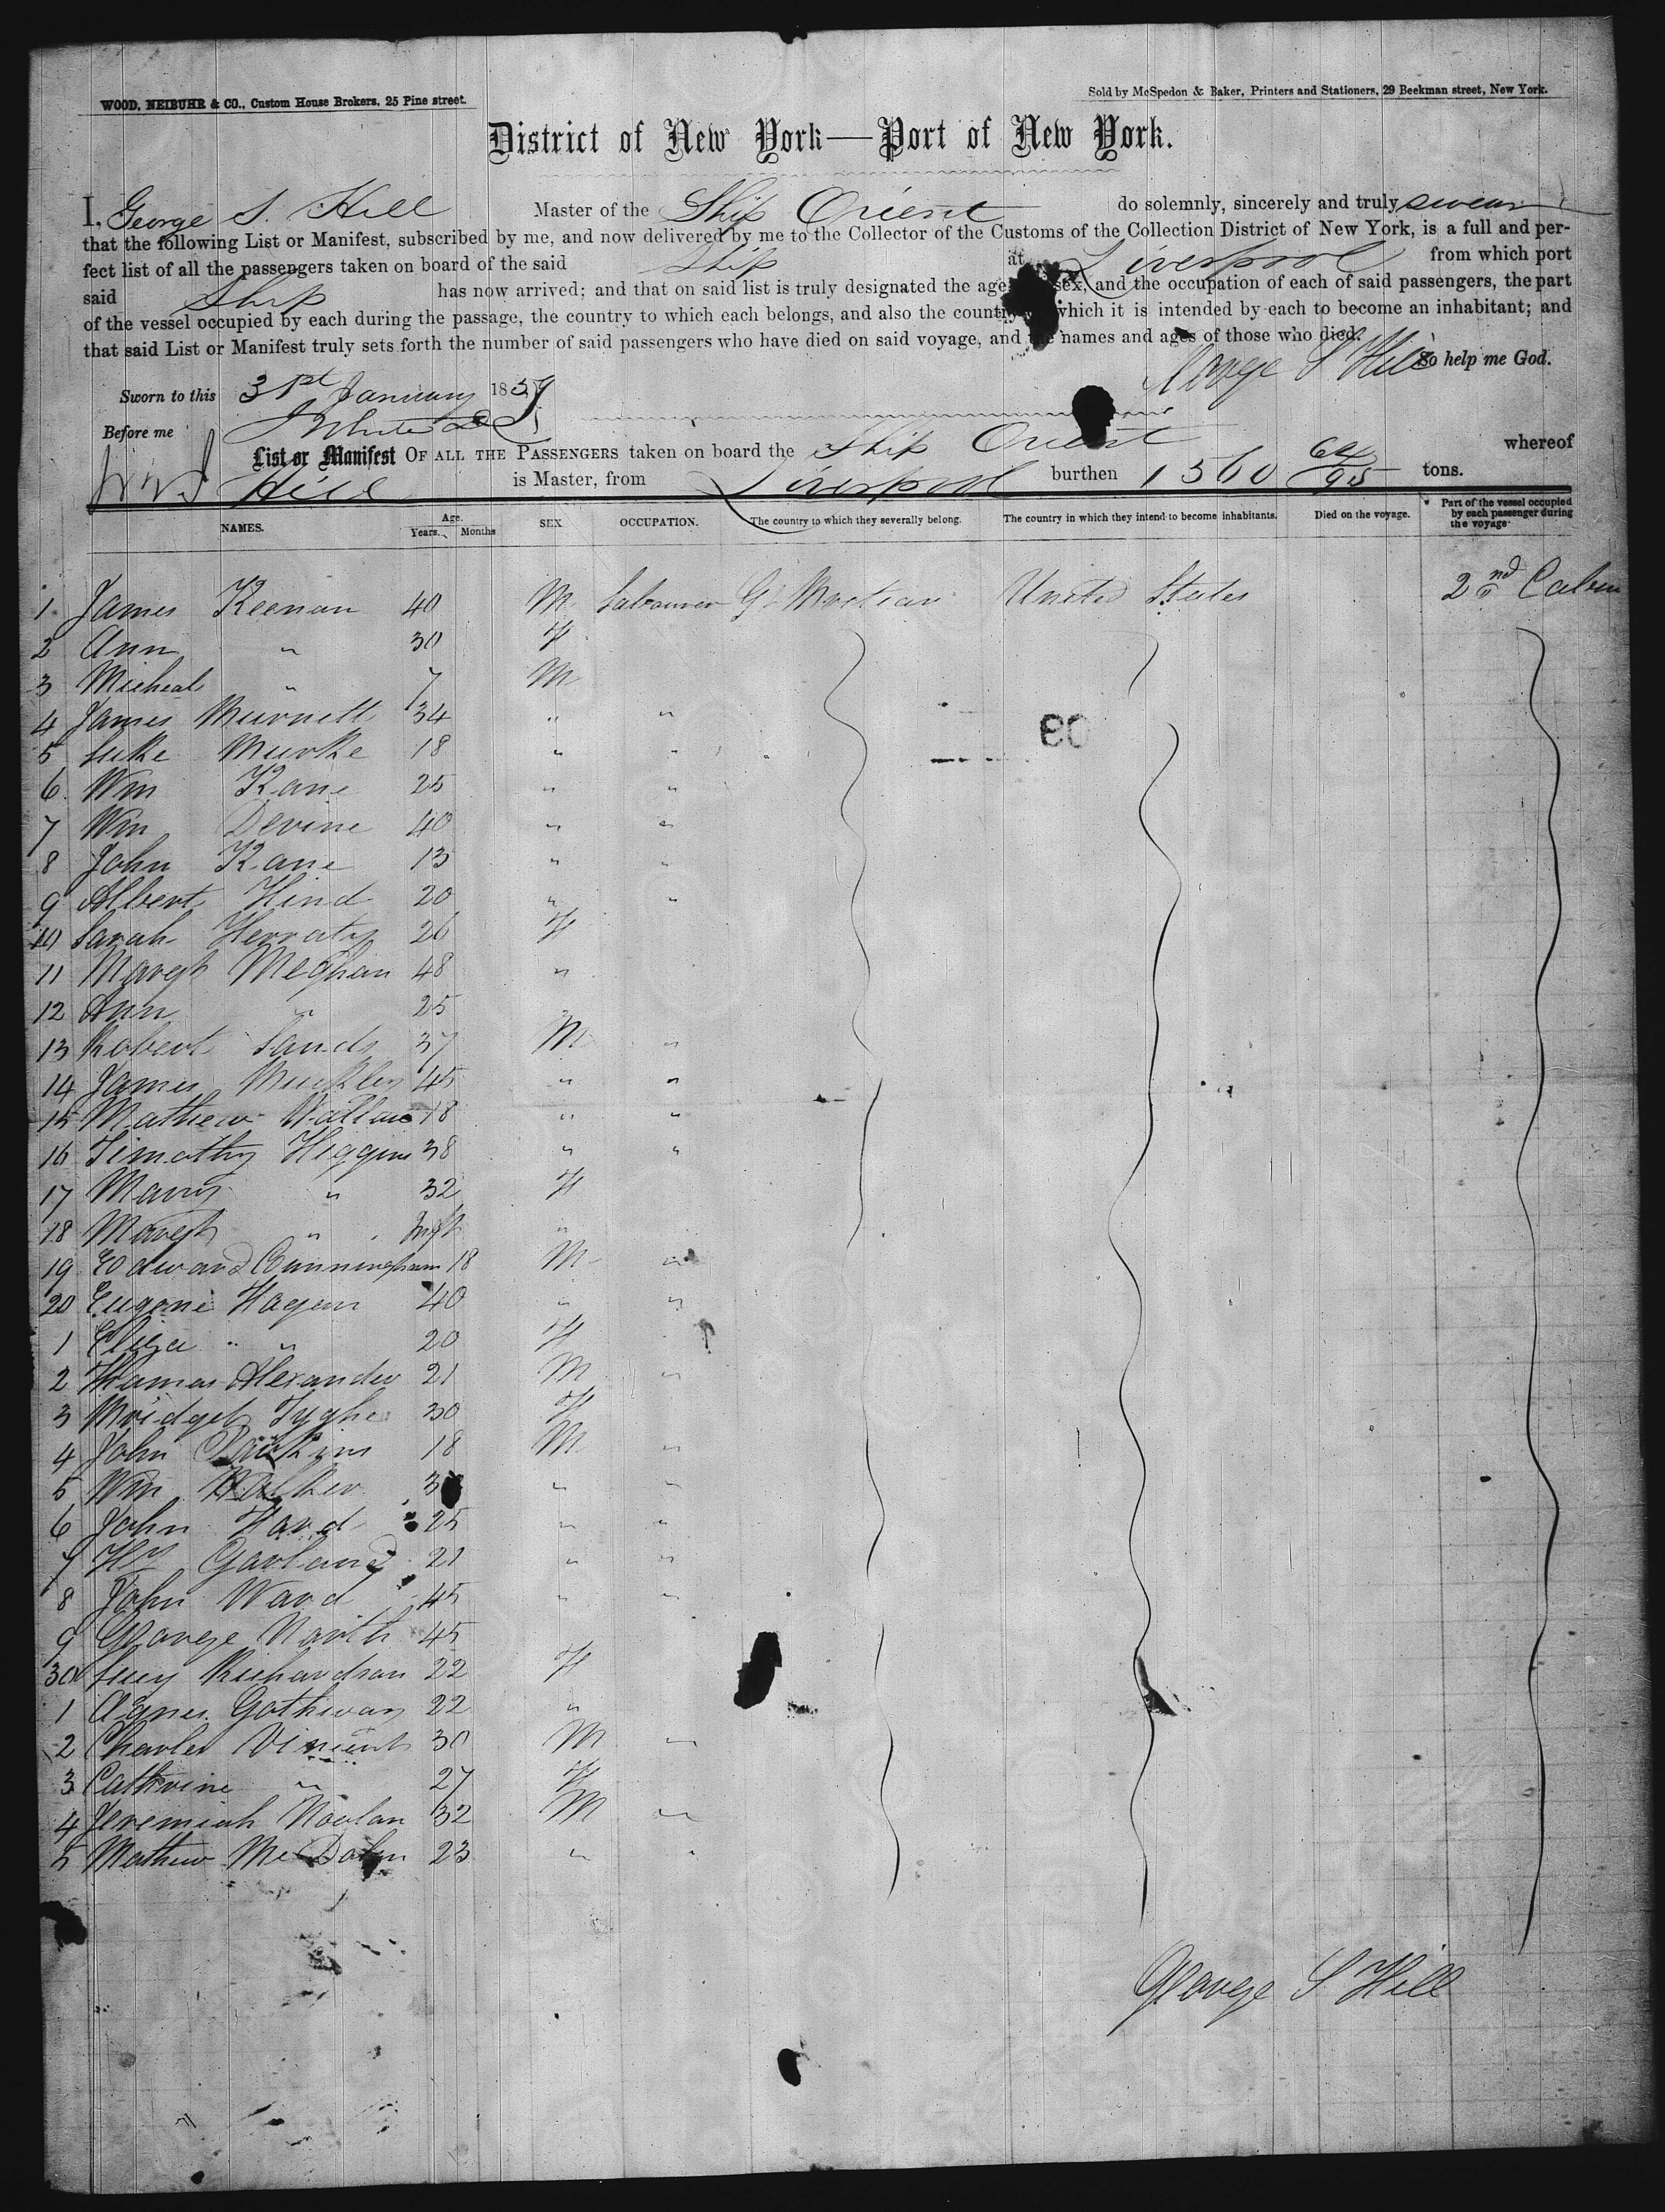 WOOD, NEIBUHR & CO., Custom House Brokers, 25 Pine street.
Sold by McSpedon & Baker, Printers and Stationers, 29 Beekman street, New York.
District of New York—Port of New York.
I, George S. Hill Master of the Ship Orient do solemnly, sincerely and truly swear
that the following List or Manifest, subscribed by me, and now delivered by me to the Collector of the Customs of the Collection District of New York, is a full and per-
fect list of all the passengers taken on board of the said Ship at Liverpool from which port
said Ship has now arrived; and that on said list is truly designated the age sex, and the occupation of each of said passengers, the part
of the vessel occupied by each during the passage, the country to which each belongs, and also the country which it is intended by each to become an inhabitant; and
that said List or Manifest truly sets forth the number of said passengers who have died on said voyage, and the names and ages of those who died.
George S Hill So help me God.
Sworn to this 31st January 1859
Before me
List or Manifest OF ALL THE PASSENGERS taken on board the Ship Orient whereof
Hill is Master, from Liverpool burthen 1560 64/95 tons.
NAMES. Age. Years. Months SEX OCCUPATION. The country to which they severally belong. The country in which they intend to become inhabitants. Died on the voyage. Part of the vessel occupied by each passenger during the voyage.
1 James Keenan 40 M Labourer United States 2nd Cabin
2 Ann " 30 F
3 Micheal " 7 M
4 James Murnett 34 " "
5 Luke Murke 18 " "
6 Wm Kane 25 " "
7 Wm Devine 40 " "
8 John Kane 13 " "
9 Albert Hind 20 " "
10 Sarah Herraty 26 F
11 Margt Meghan 48 "
12 Ann " 25
13 Robert Sands 37 M "
14 James Muckley 45 " "
15 Mathew Wallace 18 " "
16 Timothy Higgins 38 " "
17 Mary " 32 F
18 Margt " Inft "
19 Edward Cunningham 18 M "
20 Eugene Hagan 40 " "
1 Eliza " 20 F
2 Thomas Alexander 21 M "
3 Bridget Tyghe 30 F
4 John 18 M "
5 Wm Walker " "
6 John Hand 25 " "
7 Hy Garland 21 " "
8 John Ward 45 " "
9 George North 45
30 Lucy Richardson 22 F
1 Agnes Gothway 22 "
2 Charles Vincent 30 M "
3 Cathrine " 27 F
4 Jeremiah Noolan 32 M "
5 Mathew 23 " "
George S Hill